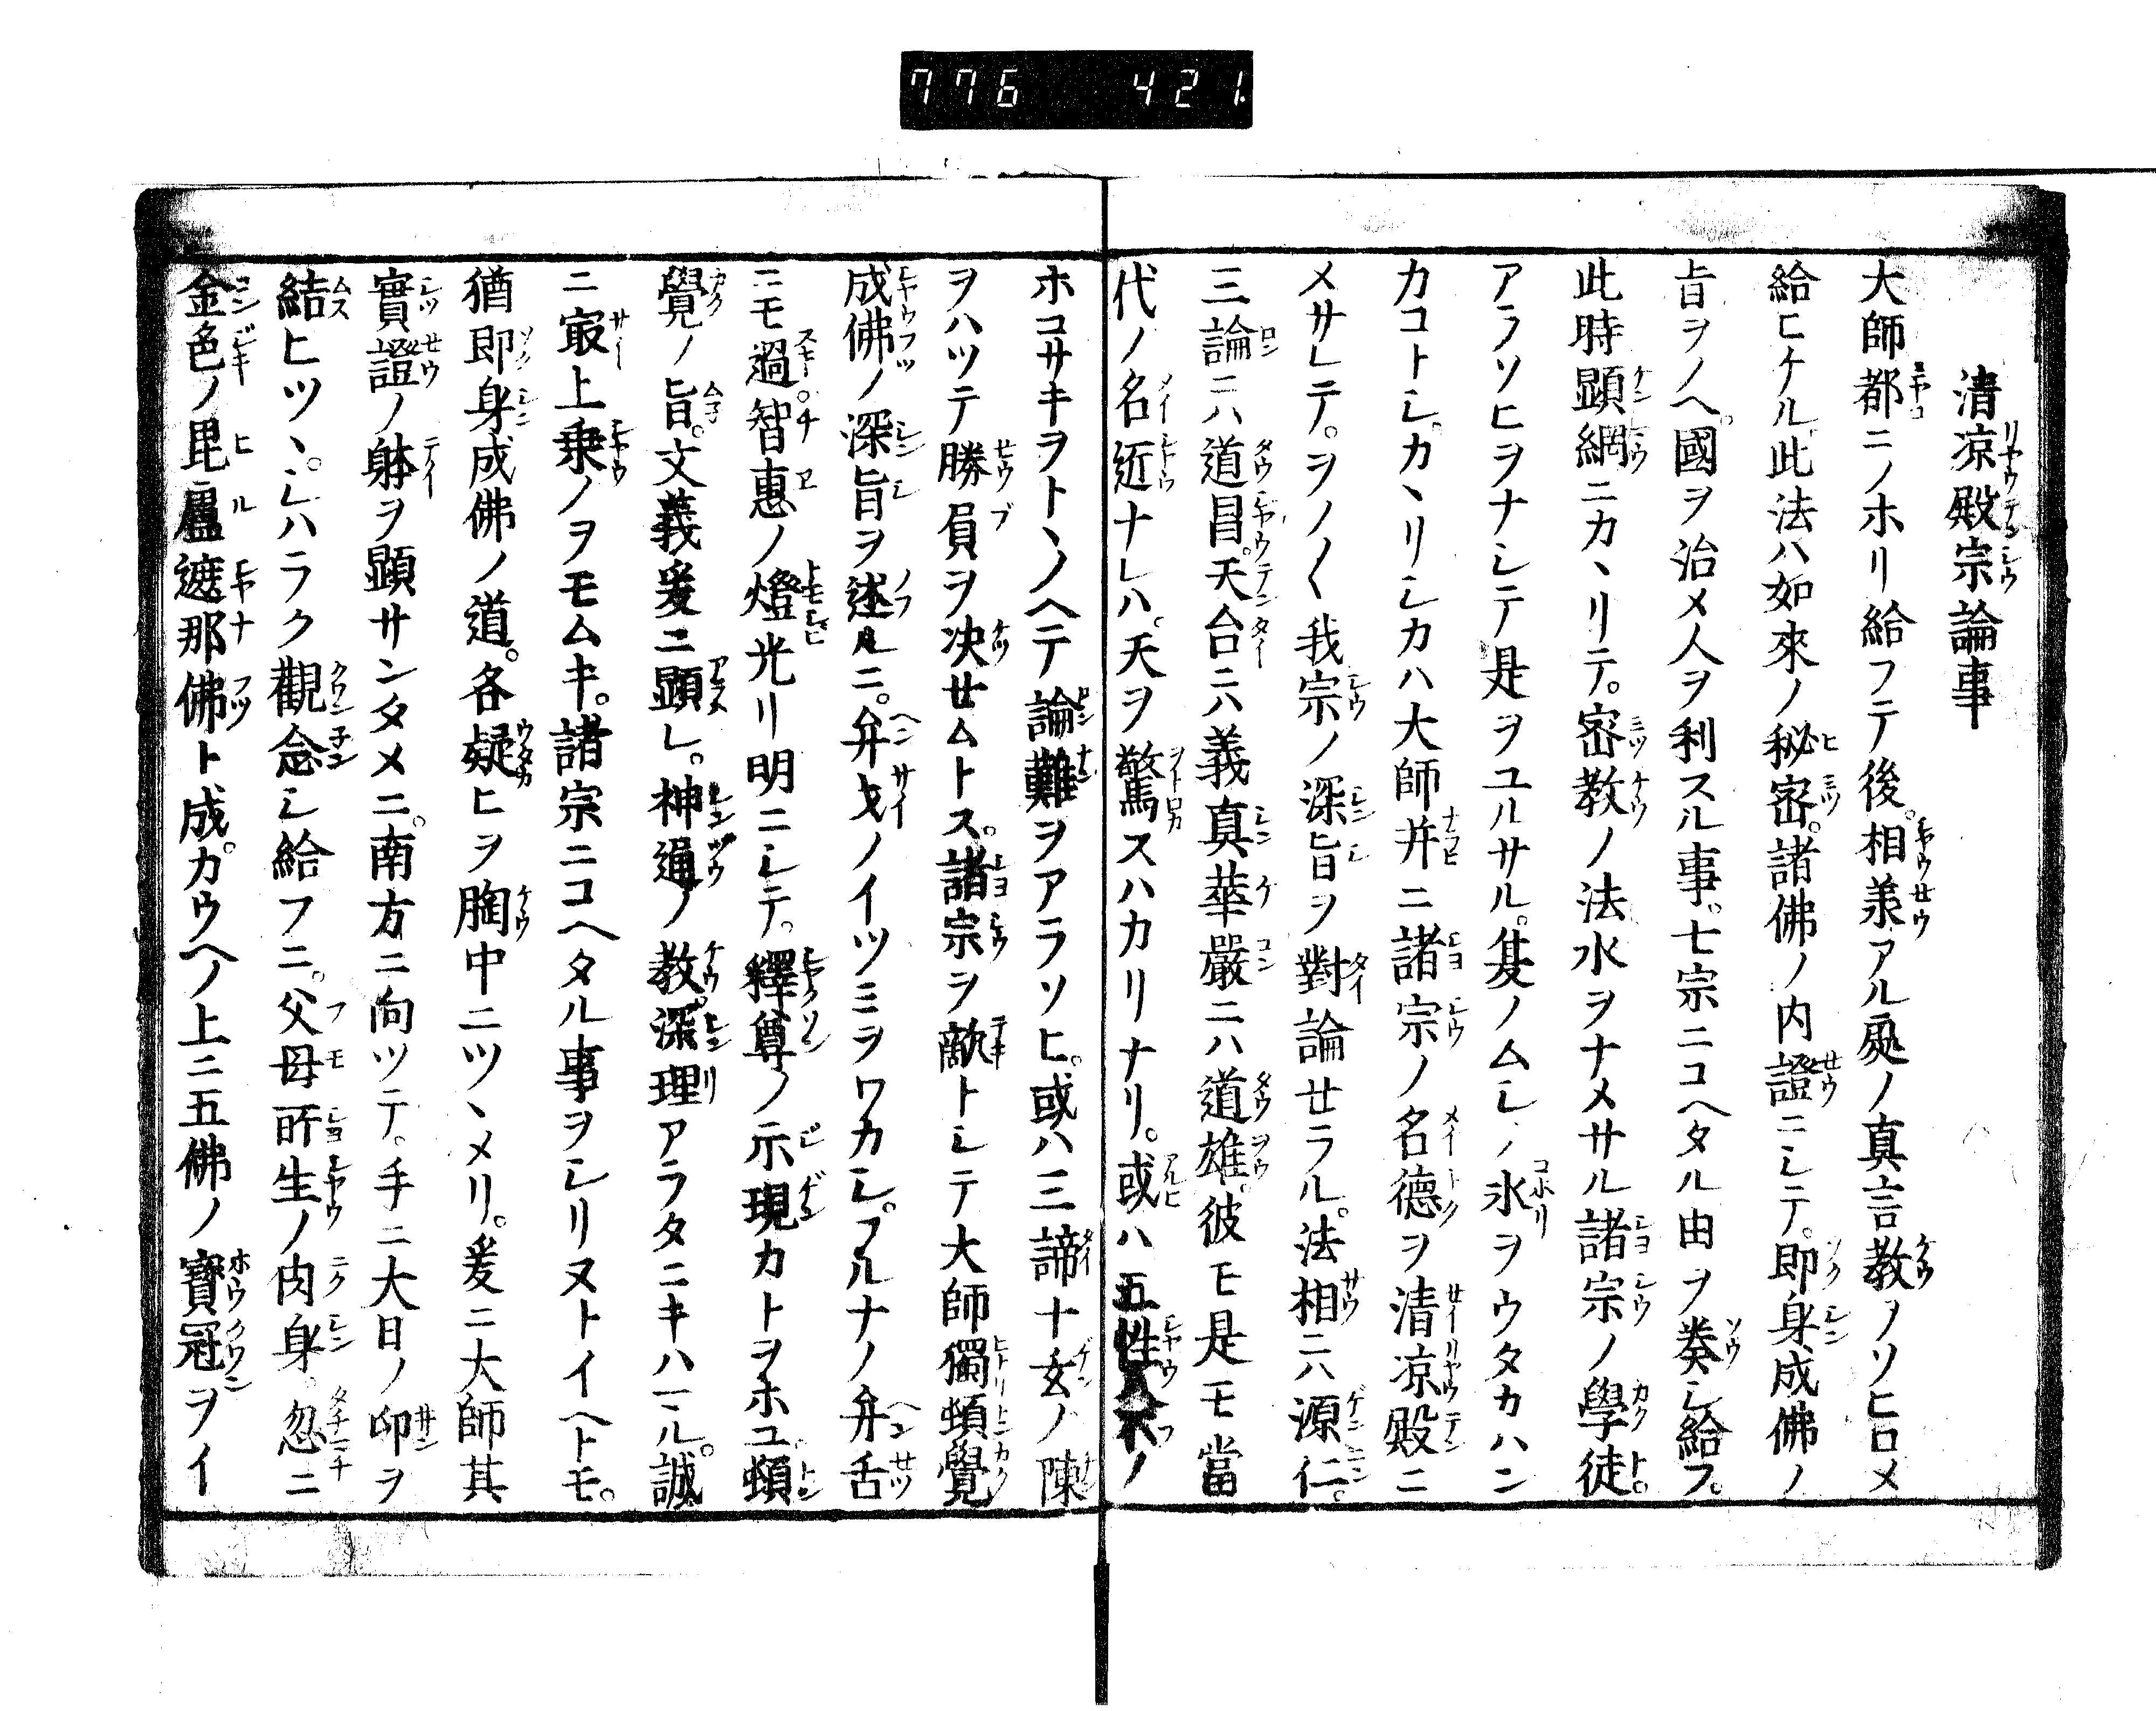 776 421
清凉殿宗論事
大師都ニノホリ給フテ後。相承アル処ノ真言教ノソヒロメ
給ヒケル。此法ハ如來ノ秘密。諸佛ノ内證ニシテ。即身成佛ノ
旨ヲノヘ。國ヲ治メ人ヲ利スル事。七宗ニコヘタル由ヲ奏シ給フ。
此時顕網ニカヽリテ。密教ノ法水ヲナメサル諸宗ノ學徒。
アラソヒヲナシテ是ヲユルサル。夏ノムシノ氷ヲウタカハン
カコトシ。カヽリシカハ大師并ニ諸宗ノ名德ヲ清凉殿ニ
メサレテ。ヲノ〱我宗ノ深旨ヲ對論セラル。法相ニハ源仁。
三論ニハ道昌。天台ニハ義真。華嚴ニハ道雄。彼モ是モ當
代ノ名迊ナレハ。天ヲ驚スハカリナリ。或ハ五性ノ
ホコサキヲトヽノヘテ論難ヲアラソヒ。或ハ三諦十玄ノ陳
ヲハツテ勝負ヲ决セムトス。諸宗ヲ敵トシテ大師獨頓覺
成佛ノ深旨ヲ述ルニ。弁才ノイツミヲワカシ。フルナノ弁舌
ニモ過。智惠ノ燈光リ明ニシテ。釋尊ノ示現カトヲホユ。頓
覺ノ旨。文義爰ニ顕レ。神通ノ教。深理アラタニキハマル。誠
ニ寂上乗ノヲモムキ。諸宗ニコヘタル事ヲシリヌトイヘトモ。
猶即身成佛ノ道。各疑ヒヲ胸中ニツヽメリ。爰ニ大師其
實證ノ躰ヲ顕サンタメニ。南方ニ向ツテ。手ニ大日ノ印ヲ
結ヒツヽ。シハラク觀念シ給フニ。父母所生ノ肉身。忽ニ
金色ノ毘盧遮那佛ト成。カウヘノ上ニ五佛ノ寶冠ヲイ